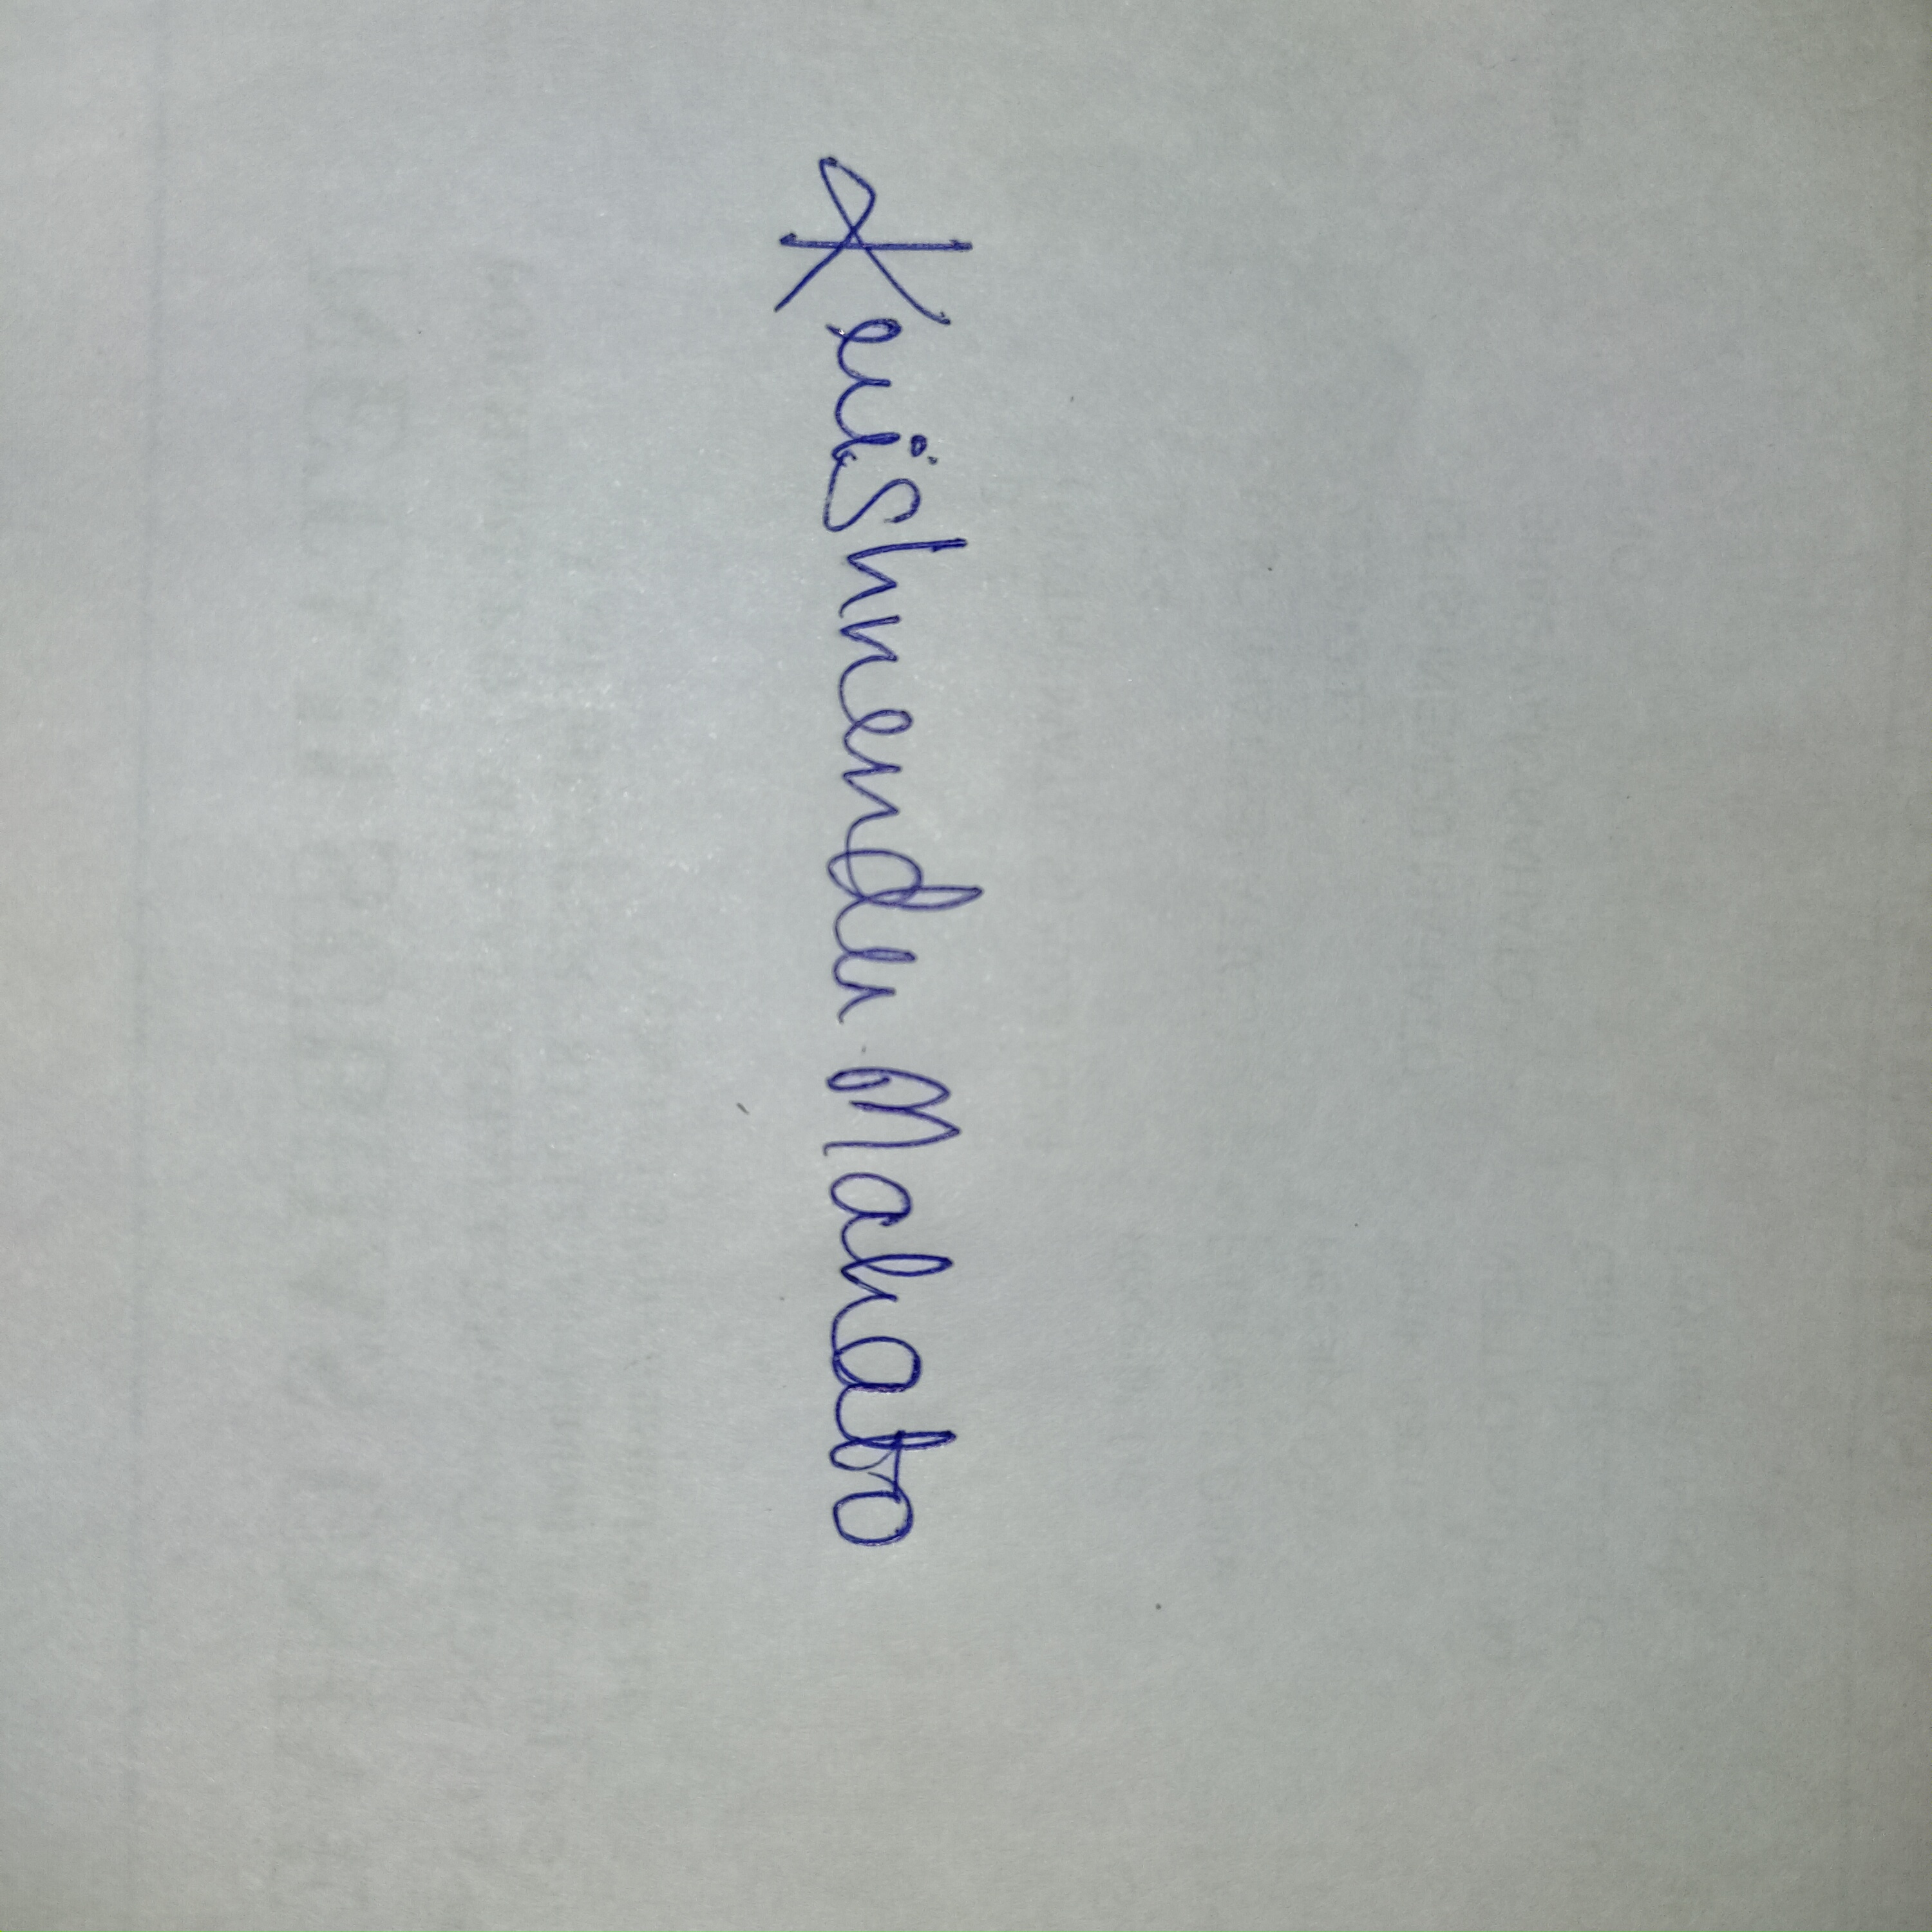 Krishnendu Mahato